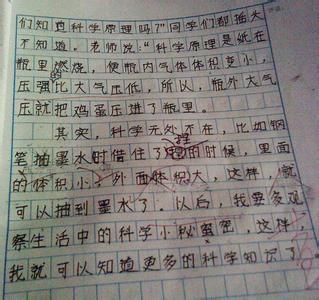 们知道科学原理吗?”同学们都摇头
不知道。老师说:“科学原理是纸在
瓶里燃烧,使瓶内气体体积变小,
压强比大气压低,所以,瓶外大气
压就把鸡蛋压进了瓶里。
其实,科学无处不在,比如钢
笔抽墨水时借住了的时候,里面
的体积小,外面体积大,这样,就
可以抽到墨水了。以后,我要多观
察生活中的科学小秘密,这样,
我就可以知道更多的科学知识了。